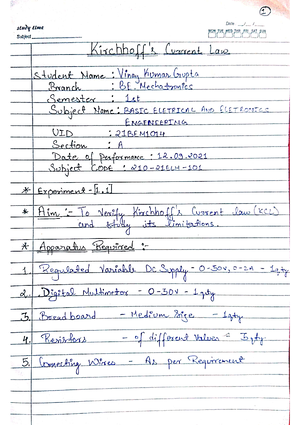 1
Date
MON TUE WED THU FRI SAT SUN
Subject
Kirchhoff's Current Law
Student Name : Vinay Kumar Gupta
Branch : BE. Mechatronics
Semester : 1st
Subject Name : BASIC ELETRICAL AND ELETRONICS
ENGINEERING
UID : 21BEM1014
Section : A
Date of performance : 12.09.2021
Subject CODE : 210-21ELH-101
* Experiment - [1.1]
* Aim :- To Verify Kirchhoff's Current law (KCL)
and study its limitations.
* Apparatus Required :-
1. Regulated Variable Dc Supply - 0-30V, 0-2A - 1qty
2. Digital Multimeter - 0-30V - 1qty
3. Breadboard - Medium Size - 1qty
4. Resistors - of different Values = 5qty
5. Connecting Wires - As per Requirement